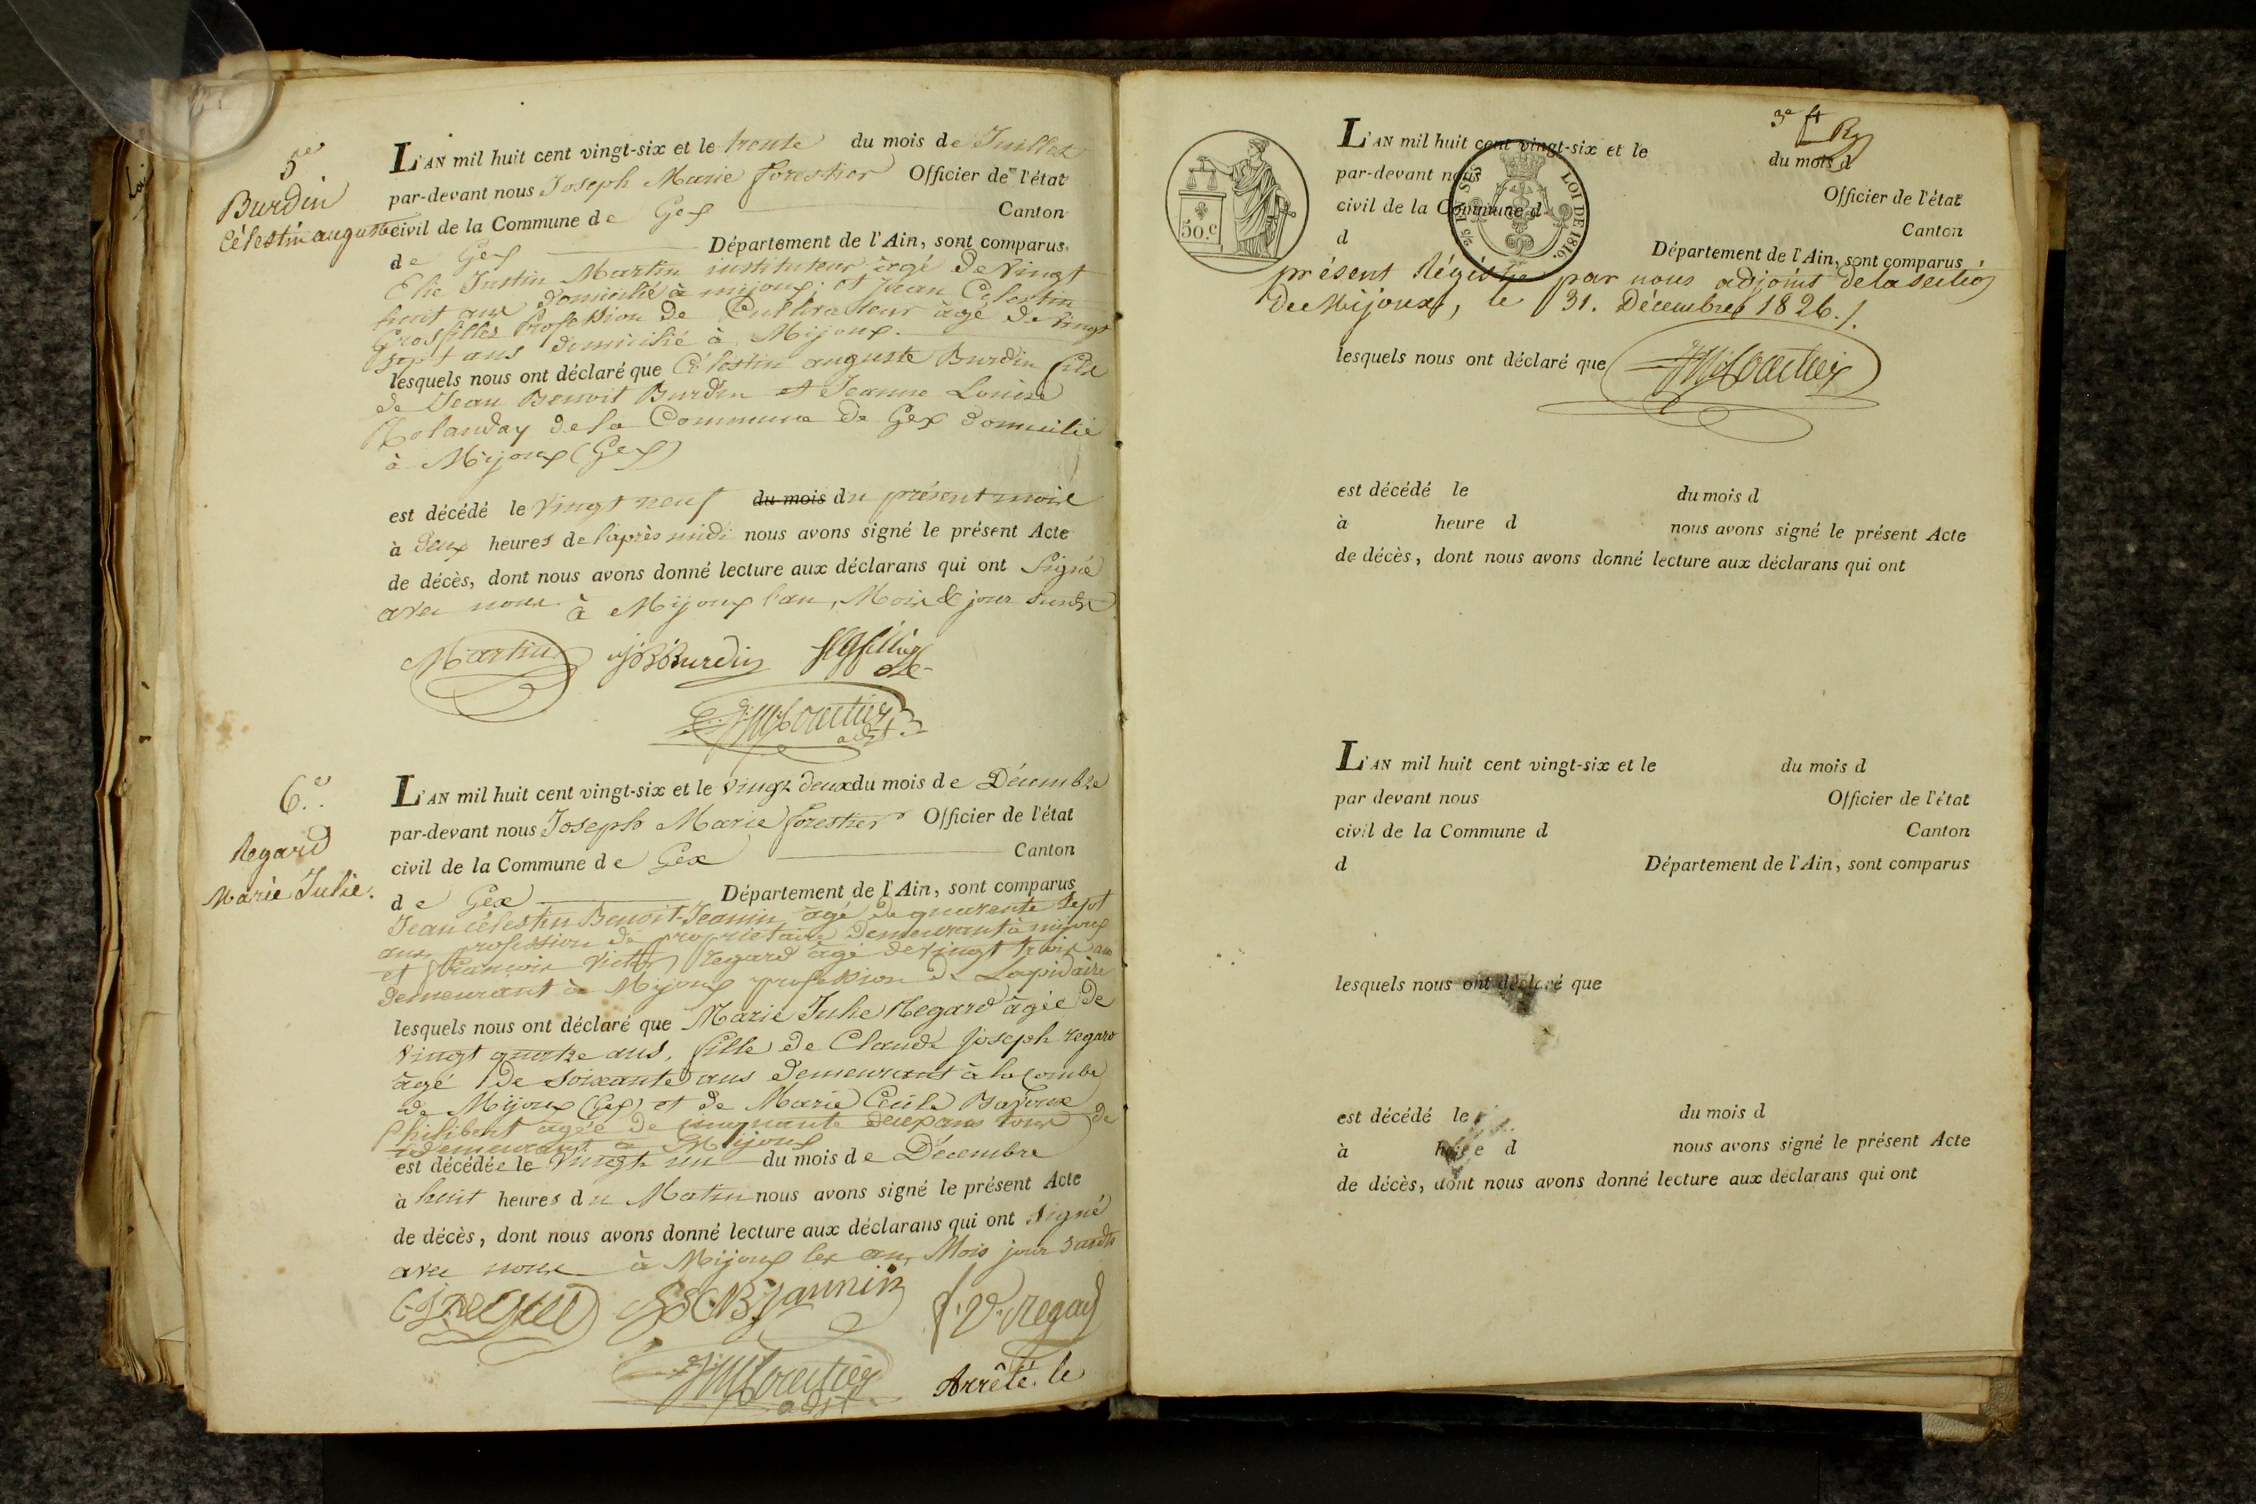 5.e
Burdin
Célestin auguste
L'AN mil huit cent vingt-six et le trente du mois de Juillet
par-devant nous Joseph Marie forestier Officier de l'état
civil de la Commune de Gex Canton
de Gex Département de l'Ain, sont comparus
Elie Justin Martin instituteur âgé de vingt
huit ans domicilié à mijoux; et Jean Célestin
Grosfillez Profession de Cultivateur âgé de vingt
sept ans domicilié à Mijoux.
lesquels nous ont déclaré que Célestin auguste Burdin fils
de Jean Benoit Burdin et Jeanne Louise
Rolanday de la Commune de Gex domicilié
à Mijoux (Gex)
est décédé le vingt neuf du mois du présent mois
à deux heures de l'après midi nous avons signé le présent Acte
de décès, dont nous avons donné lecture aux déclarans qui ont signé
avec nous à Mijoux l'an, Mois & jour susdts
Martin JBBurdin
adjt
6.e
Regard
Marie Julie.
L'AN mil huit cent vingt-six et le vingt deux du mois de Décembre
par-devant nous Joseph Marie forestier Officier de l'état
civil de la Commune de Gex Canton
de Gex Département de l'Ain, sont comparus
Jean Célestin Benoit-Jeanin âgé de quarante sept
ans profession de propriétaire demeurant à mijoux
et françois Victor regard âgé de vingt trois ans
demeurant à Mijoux profession de Lapidaire
lesquels nous ont déclaré que Marie Julie Regard âgée de
vingt quatre ans, fille de Claude joseph regard
âgé de soixante ans demeurant à la Combe
de Mijoux (Gex) et de Marie Cécile
Philibert agée de cinquante deux ans tous de
demeurant à Mijoux
est décédée le vingt un du mois de Décembre
à huit heures du Matin nous avons signé le présent Acte
de décès, dont nous avons donné lecture aux déclarans qui ont signé
avec nous à Mijoux les an, Mois jour susdts
JCBJannin f.v.regard
adjt
Arrêté le
3e ft
50.c
LOI DE 1816.
L'AN mil huit cent vingt-six et le du mois d
par-devant nous Officier de l'état
civil de la Commune d Canton
d Département de l'Ain, sont comparus
présent Régistre par nous adjoint de la section
de Mijoux, le 31. Décembre 1826./.
lesquels nous ont déclaré que
est décédé le du mois d
à heure d nous avons signé le présent Acte
de décès, dont nous avons donné lecture aux déclarans qui ont
L'AN mil huit cent vingt-six et le du mois d
par devant nous Officier de l'état
civil de la Commune d Canton
d Département de l'Ain, sont comparus
lesquels nous ont déclaré que
est décédé le du mois d
à heure d nous avons signé le présent Acte
de décès, dont nous avons donné lecture aux déclarans qui ont